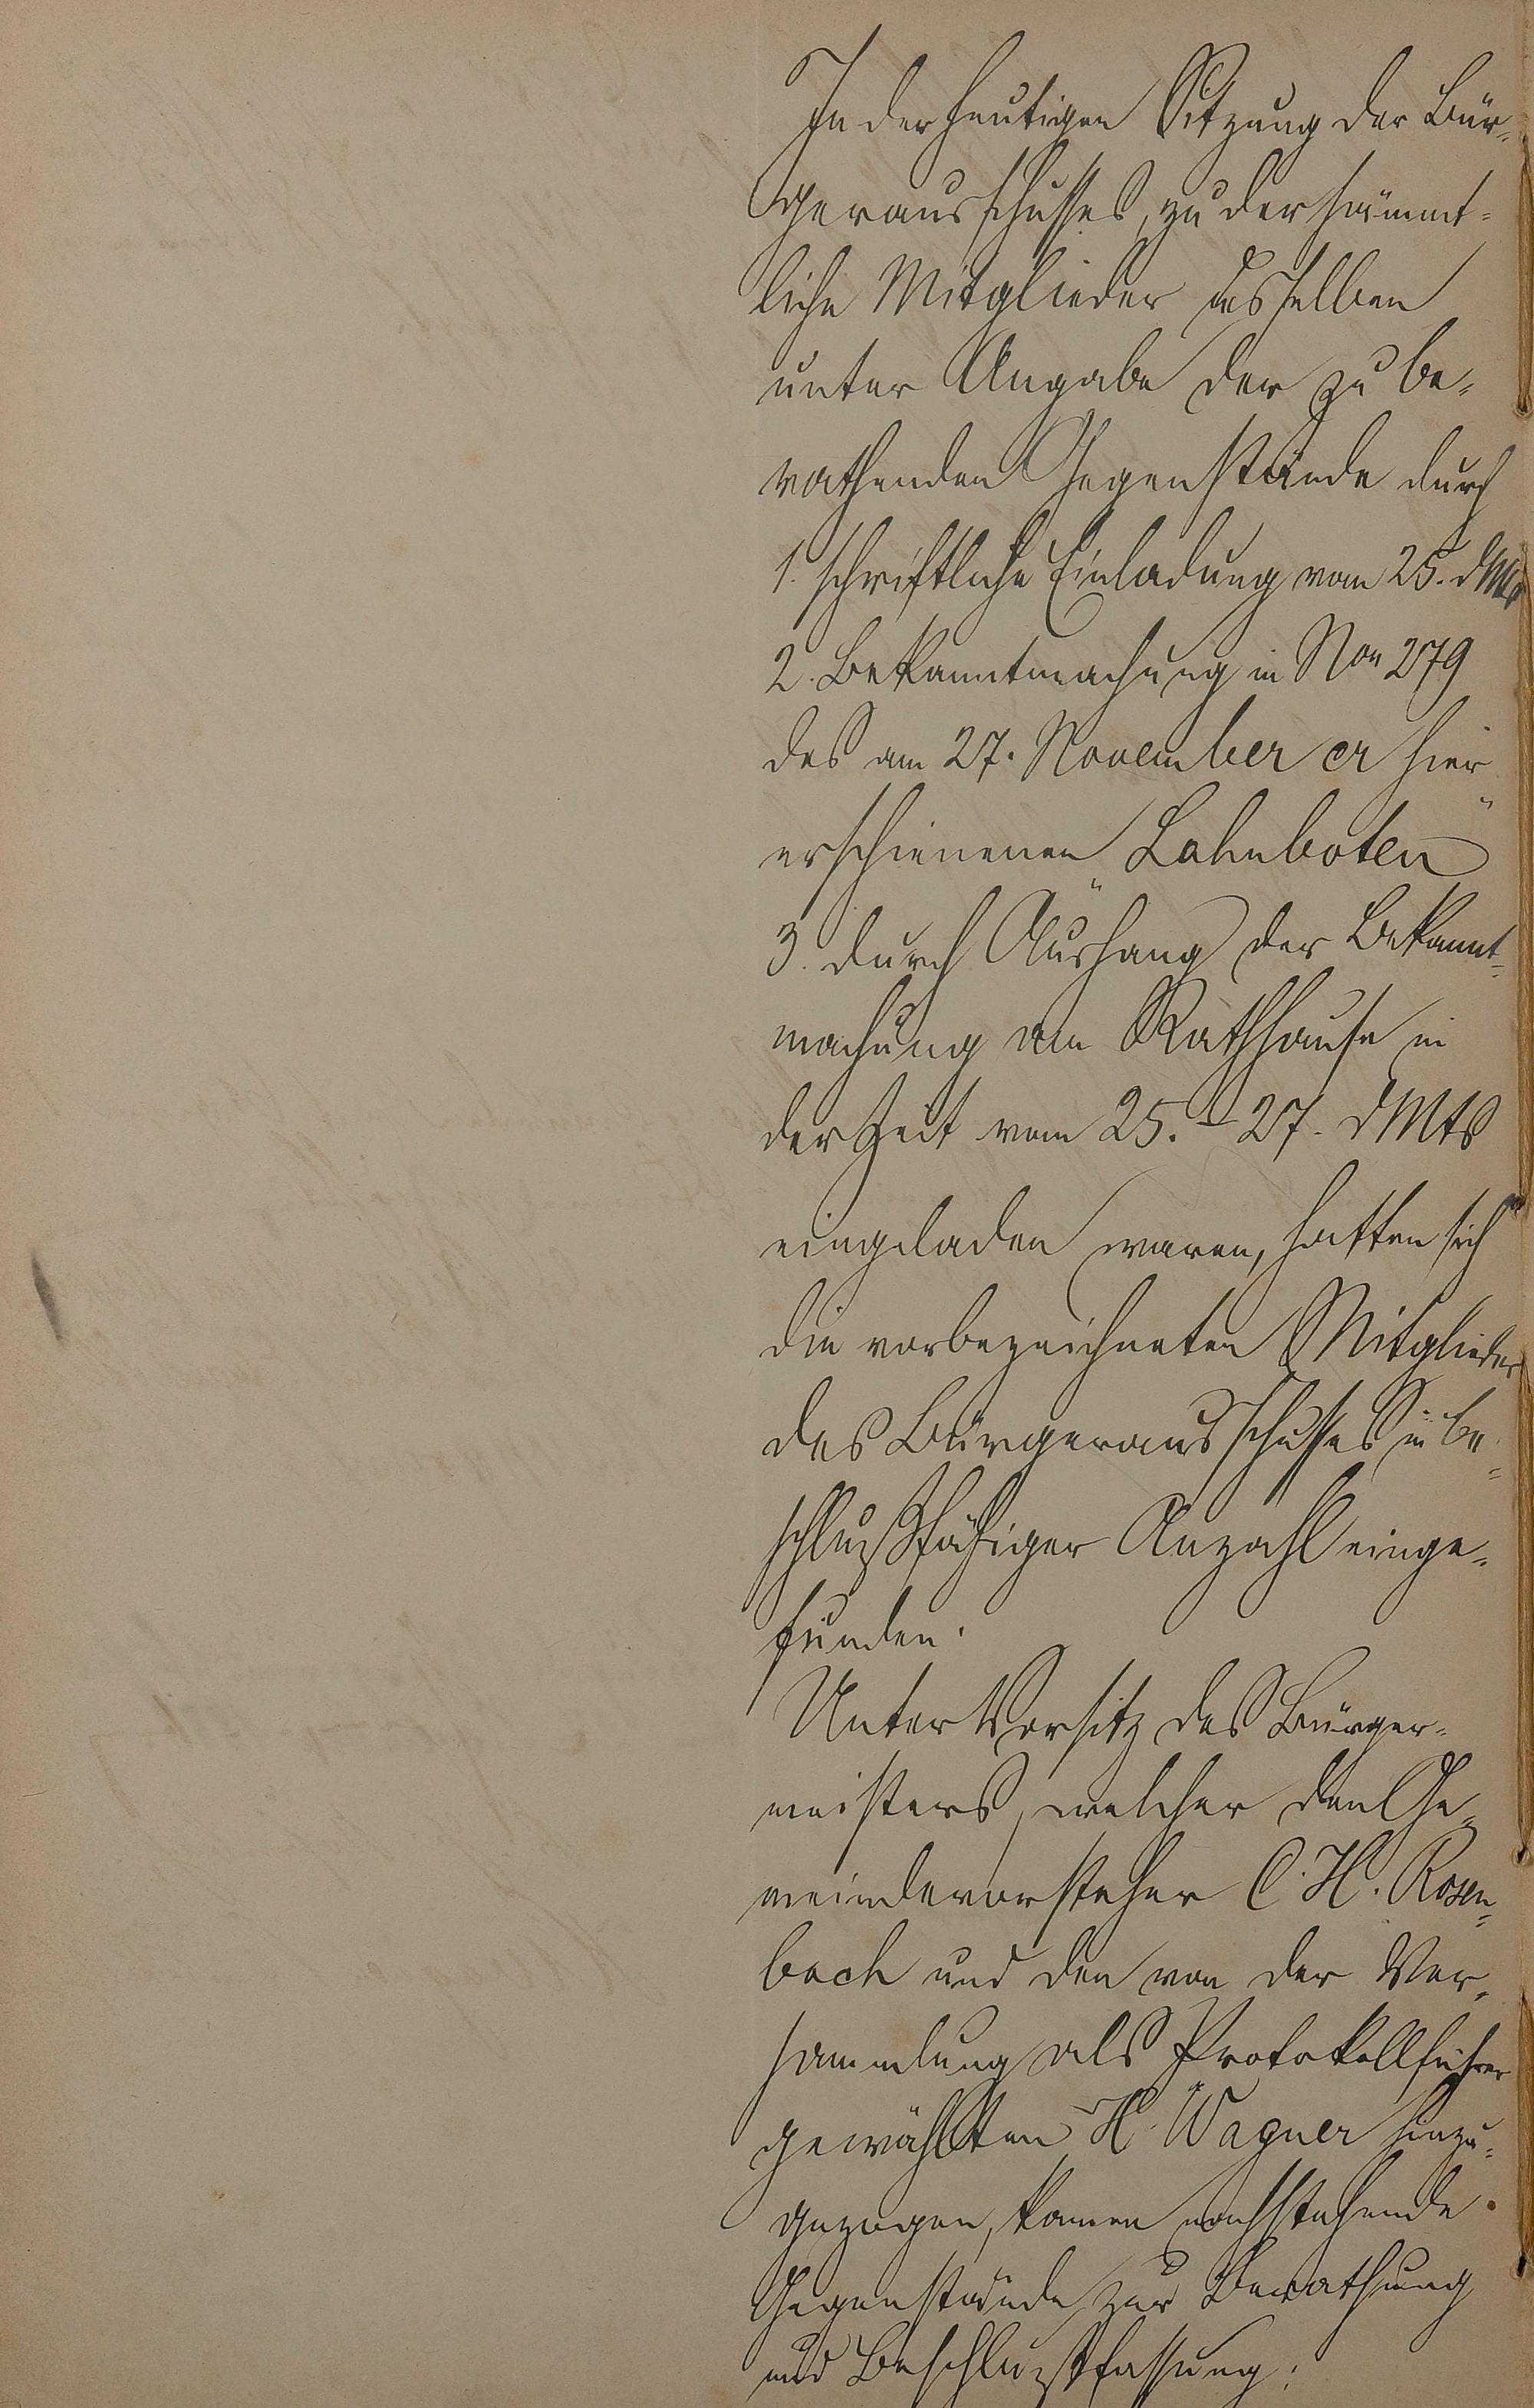 In der heutigen Sitzung des Bür-
gerausschusses, zu der sämmt-
liche Mitglieder desselben
unter Angabe der zu be-
rathenden Gegenstände durch
1. schriftliche Einladung vom 25. dMts
2. Bekanntmachung in Nro 279
des am 27. November cr hier
erschienenen „Lahnboten"
3. durch Aushang der Bekannt-
machung am Rathhause in
der Zeit vom 25. - 27. dMts
eingeladen waren, hatten sich
die vorbezeichneten Mitglieder
des Bürgerausschusses in be-
schlußfähiger Anzahl einge-
funden.
Unter Vorsitz des Bürger-
meisters, welcher den Ge-
meindevorsteher C. H. Rosen-
bach und den von der Ver-
sammlung als Protokollführer
gewählten H. Wagner hinzu-
gezogen, kamen nachstehende
Gegenstände zur Berathung
und Beschlußfassung: